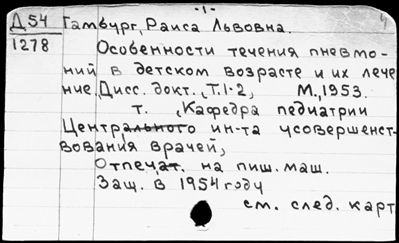 -1-
Д54 Гамбург, Раиса Львовна. 4
1278 Особенности течения пневмо-
ний в детском возрасте и их лече
ние. Дисс. докт., Т.1-2, М., 1953.
т. , Кафедра педиатрии
Центрального ин-та усовершенст-
вования врачей,
Отпечат. на пиш. маш.
Защ. в 1954 году
см. след. карт